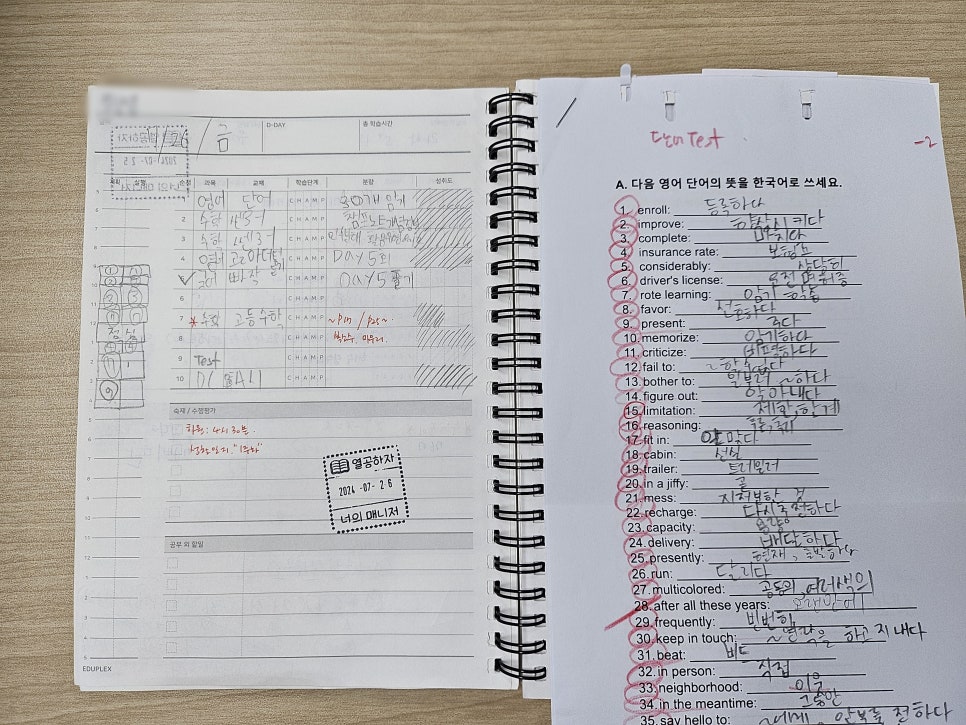 7/26 / 금
D-DAY
총 학습시간
계획 실행 순번 과목 교재 학습단계 분량 성취도
1 영어 단어 CHAMP 30개 암기
2 수학 CHAMP
3 수학 쎈 CHAMP
4 영어 CHAMP DAY5
국어 CHAMP DAY5 풀기
6 CHAMP
7 * 수학 고등수학 CHAMP ~p17 / p25~
8 CHAMP 마무리.
9 Test CHAMP
10 CHAMP
점심
숙제 / 수행평가
하원: 4시 30분.
열공하자
2024 -07- 26
너의 매니저
공부 외 할일
EDUPLEX
단어 Test
-2
A. 다음 영어 단어의 뜻을 한국어로 쓰세요.
1. enroll: 등록하다
2. improve: 향상시키다
3. complete: 마치다
4. insurance rate: 보험료
5. considerably: 상당히
6. driver's license: 운전면허증
7. rote learning: 암기 학습
8. favor: 선호하다
9. present: 주다
10. memorize: 암기하다
11. criticize: 비평하다
12. fail to:
13. bother to: 일부러 ~하다
14. figure out: 알아내다
15. limitation: 제한, 한계
16. reasoning: 추론,
17. fit in: 알맞다
18. cabin: 선실
19. trailer: 트레일러
20. in a jiffy: 곧
21. mess: 지저분한 것
22. recharge: 다시 충전하다
23. capacity: 용량
24. delivery: 배달하다
25. presently: 현재,
26. run: 달리다
27. multicolored: 여러색의
28. after all these years: 오래만에
29. frequently: 빈번히
30. keep in touch: ~연락을 하고 지내다
31. beat: 비트
32. in person: 직접
33. neighborhood: 이웃
34. in the meantime: 그동안
35. say hello to: ~에게 안부를 전하다